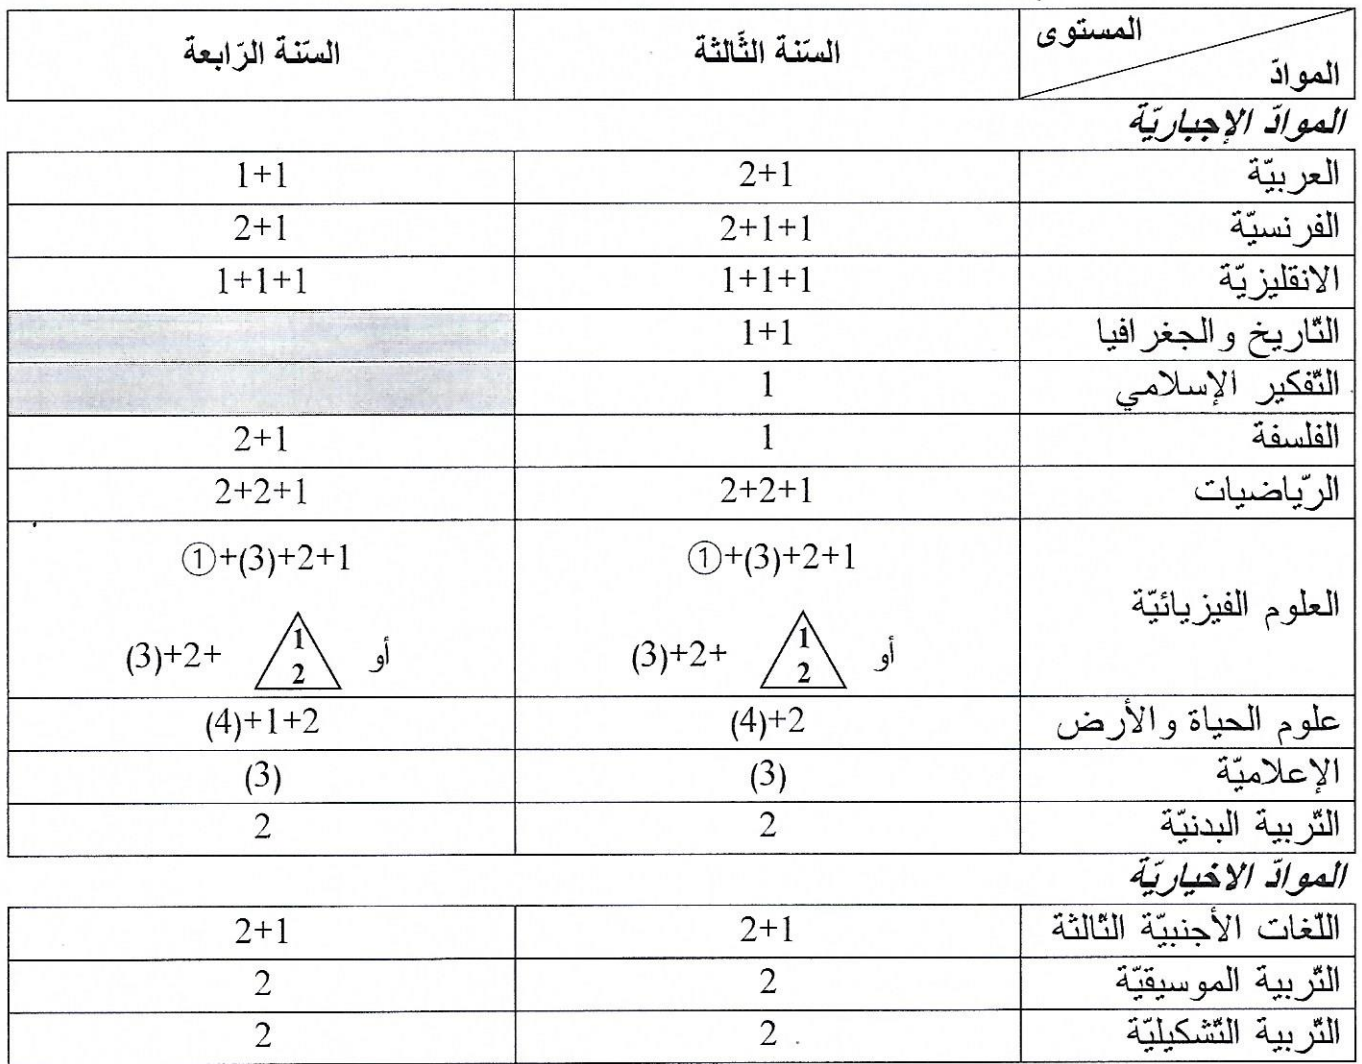 المستوى السّنة الثّالثة السّنة الرّابعة
الموادّ
الموادّ الإجباريّة
العربيّة 2+1 1+1
الفرنسيّة 2+1+1 2+1
الانقليزيّة 1+1+1 1+1+1
التّاريخ والجغرافيا 1+1
التّفكير الإسلامي 1
الفلسفة 1 2+1
الرّياضيات 2+2+1 2+2+1
①+(3)+2+1 ①+(3)+2+1
العلوم الفيزيائيّة
أو 1 2 +2+(3) أو 1 2 +2+(3)
علوم الحياة والأرض (4)+2 (4)+1+2
الإعلاميّة (3) (3)
التّربية البدنيّة 2 2
الموادّ الاخياريّة
اللّغات الأجنبيّة الثّالثة 2+1 2+1
التّربية الموسيقيّة 2 2
التّربية التّشكيليّة 2 2